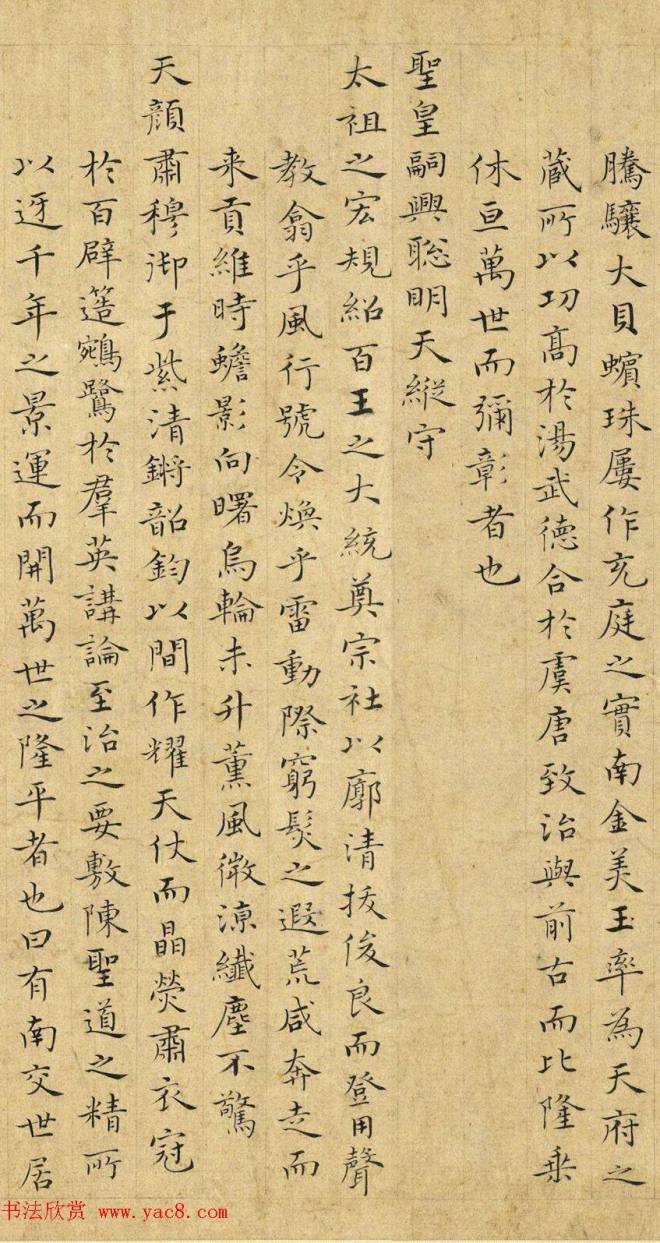 騰驤大貝蠙珠屢作充庭之實南金美玉率為天府之
蔵所以功髙於湯武德合於虞唐致治與前古而比隆乗
休亘萬世而彌彰者也
聖皇嗣興聡明天縱守
太祖之宏規紹百王之大統奠宗社以廓清拔俊良而登用聲
教翕乎風行號令煥乎雷動際窮髮之遐荒咸奔走而
来貢維時蟾影向曙烏輪未升薰風微涼纖塵不驚
天顔肅穆御于紫清鏘韶鈞以間作耀天仗而晶熒肅衣冠
於百辟簉鵷鷺於羣英講論至治之要敷陳聖道之精所
以迓千年之景運而開萬世之隆平者也曰有南交世居
书法欣赏 www.yac8.com